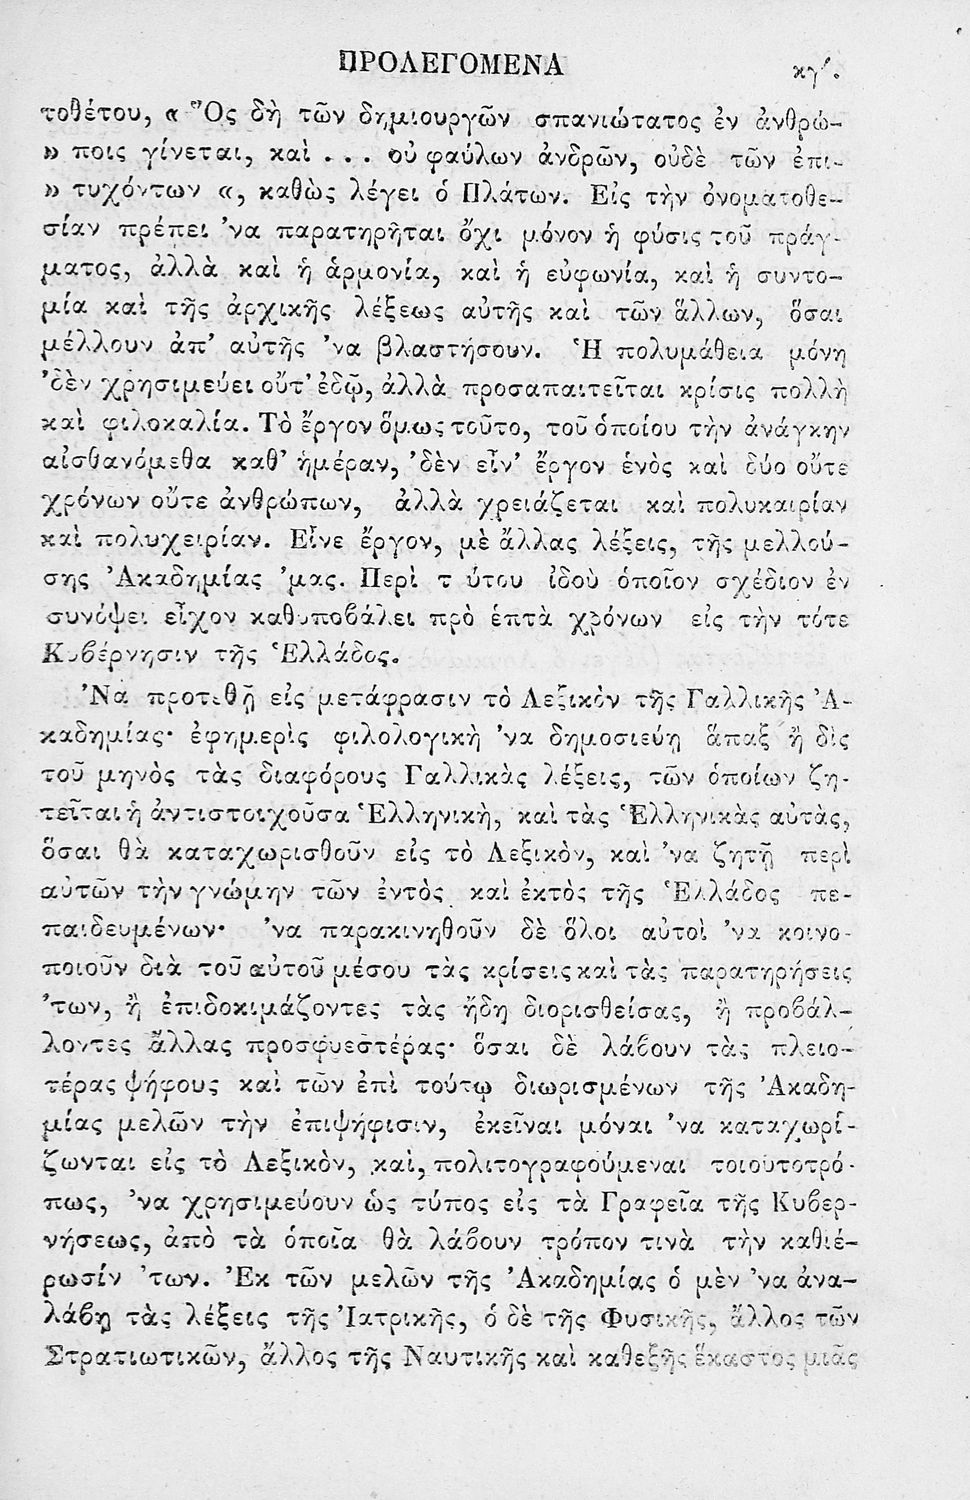 ΠΡΟΛΕΓΟΜΕΝΑ κγ΄.
τοθέτου, « Ὃς δὴ τῶν δημιουργῶν σπανιώτατος ἐν ἀνθρώ-
» ποις γίνεται, καὶ . . . οὐ φαύλων ἀνδρῶν, οὐδὲ τῶν ἐπι-
» τυχόντων «, καθὼς λέγει ὁ Πλάτων. Εἰς τὴν ὀνοματοθε-
σίαν πρέπει ʼνα παρατηρῆται ὄχι μόνον ἡ φύσις τοῦ πράγ-
ματος, ἀλλὰ καὶ ἡ ἁρμονία, καὶ ἡ εὐφωνία, καὶ ἡ συντο-
μία καὶ τῆς ἀρχικῆς λέξεως αὐτῆς καὶ τῶν ἄλλων, ὅσαι
μέλλουν ἀπ' αὐτῆς ʼνα βλαστήσουν. Ἡ πολυμάθεια μόνη
ʼδὲν χρησιμεύει οὔτ' ἐδῶ, ἀλλὰ προσαπαιτεῖται κρίσις πολλὴ
καὶ φιλοκαλία. Τὸ ἔργον ὅμως τοῦτο, τοῦ ὁποίου τὴν ἀνάγκην
αἰσθανόμεθα καθ' ἡμέραν, ʼδὲν εἶν' ἔργον ἑνὸς καὶ δύο οὔτε
χρόνων οὔτε ἀνθρώπων, ἀλλὰ χρειάζεται καὶ πολυκαιρίαν
καὶ πολυχειρίαν. Εἶνε ἔργον, μὲ ἄλλας λέξεις, τῆς μελλού-
σης Ἀκαδημίας ʼμας. Περὶ τ ύτου ἰδοὺ ὁποῖον σχέδιον ἐν
συνόψει εἶχον καθυποβάλει πρὸ ἑπτὰ χρόνων εἰς τὴν τότε
Κυβέρνησιν τῆς Ἑλλάδος.
Ἀνὰ προτεθῇ εἰς μετάφρασιν τὸ Λεξικὸν τῆς Γαλλικῆς Ἀ-
καδημίας· ἐφημερὶς φιλολογικὴ ʼνα δημοσιεύῃ ἅπαξ ἢ δὶς
τοῦ μηνὸς τὰς διαφόρους Γαλλικὰς λέξεις, τῶν ὁποίων ζη-
τεῖται ἡ ἀντιστοιχοῦσα Ἑλληνικὴ, καὶ τὰς Ἑλληνικὰς αὐτὰς,
ὅσαι θὰ καταχωρισθοῦν εἰς τὸ Λεξικὸν, καὶ ʼνα ζητῇ περὶ
αὐτῶν τὴν γνώμην τῶν ἐντὸς καὶ ἐκτὸς τῆς Ἑλλάδος πε-
παιδευμένων· ʼνα παρακινηθοῦν δὲ ὅλοι αὐτοὶ ʼνα κοινο-
ποιοῦν διὰ τοῦ αὐτοῦ μέσου τὰς κρίσεις καὶ τὰς παρατηρήσεις
ʼτων, ἢ ἐπιδοκιμάζοντες τὰς ἤδη διορισθείσας, ἢ προβάλ-
λοντες ἄλλας προσφυεστέρας· ὅσαι δὲ λάβουν τὰς πλειο-
τέρας ψήφους καὶ τῶν ἐπὶ τούτῳ διωρισμένων τῆς Ἀκαδη-
μίας μελῶν τὴν ἐπιψήφισιν, ἐκεῖναι μόναι ʼνα καταχωρί-
ζωνται εἰς τὸ Λεξικὸν, καὶ, πολιτογραφούμεναι τοιουτοτρό-
πως, ʼνα χρησιμεύουν ὡς τύπος εἰς τὰ Γραφεῖα τῆς Κυβερ-
νήσεως, ἀπὸ τὰ ὁποῖα θὰ λάβουν τρόπον τινὰ τὴν καθιέ-
ρωσίν ʼτων. Ἐκ τῶν μελῶν τῆς Ἀκαδημίας ὁ μὲν ʼνα ἀνα-
λάβῃ τὰς λέξεις τῆς Ἰατρικῆς, ὁ δὲ τῆς Φυσικῆς, ἄλλος τῶν
Στρατιωτικῶν, ἄλλος τῆς Ναυτικῆς καὶ καθεξῆς ἕκαστος μιᾶς